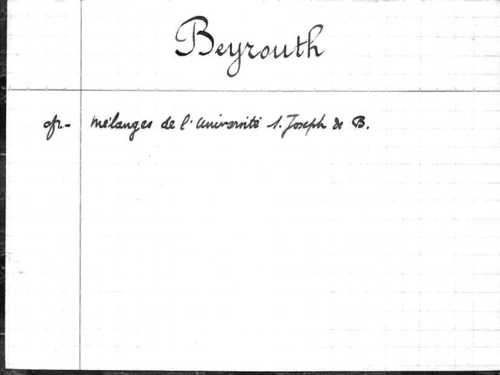 Beyrouth
cfr. Mélanges de l'Université S. Joseph de B.